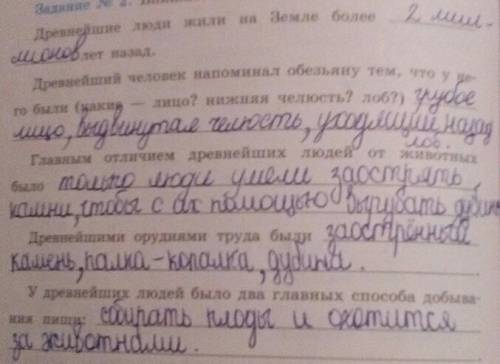 Задание № 2.
Древнейшие люди жили на Земле более 2 мил-
лионов лет назад.
Древнейший человек напоминал обезьяну тем, что у не-
го были (какие — лицо? нижняя челюсть? лоб?) грубое
лицо, выдвинутая челюсть, уходящий назад
лоб.
Главным отличием древнейших людей от животных
было только люди умели заострять
камни, чтобы с их помощью вырубать дубины
Древнейшими орудиями труда были заострённый
камень, палка-копалка, дубина.
У древнейших людей было два главных способа добыва-
ния пищи: сбирать плоды и охотится
за животнами.